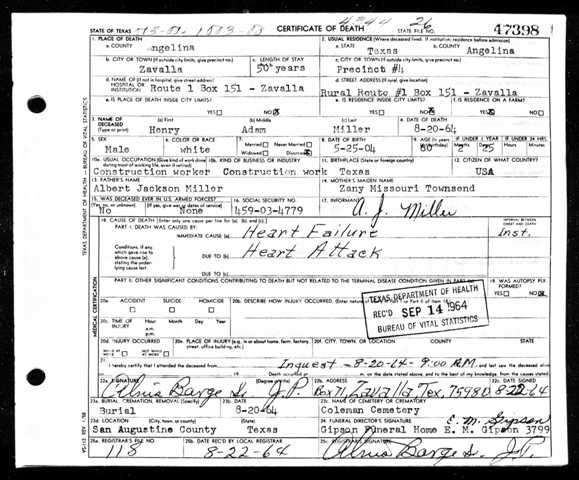 4244 26
STATE OF TEXAS CERTIFICATE OF DEATH STATE FILE NO. 47398
1. PLACE OF DEATH 2. USUAL RESIDENCE (Where deceased lived. If institution: residence before admission)
a. COUNTY Angelina a. STATE Texas b. COUNTY Angelina
b. CITY OR TOWN (If outside city limits, give precinct no.) c. LENGTH OF STAY c. CITY OR TOWN (If outside city limits, give precinct no.)
Zavalla 50 years Precinct #4
d. NAME OF (If not in hospital, give street address) HOSPITAL OR INSTITUTION d. STREET ADDRESS (If rural, give location)
Route 1 Box 151 - Zavalla Rural Route #1 Box 151 - Zavalla
e. IS PLACE OF DEATH INSIDE CITY LIMITS? e. IS RESIDENCE INSIDE CITY LIMITS? f. IS RESIDENCE ON A FARM?
YES NO YES NO YES NO
3. NAME OF DECEASED (Type or print) (a) First (b) Middle (c) Last 4. DATE OF DEATH
Henry Adam Miller 8-20-64
5. SEX 6. COLOR OR RACE 7. Married Never Married 8. DATE OF BIRTH 9. AGE IF UNDER 1 YEAR IF UNDER 24 HRS.
Male white Widowed Divorced 5-25-04 60 25
10a. USUAL OCCUPATION (Give kind of work done) 10b. KIND OF BUSINESS OR INDUSTRY 11. BIRTHPLACE (State or foreign country) 12. CITIZEN OF WHAT COUNTRY?
Construction worker Construction work Texas USA
13. FATHER'S NAME 14. MOTHER'S MAIDEN NAME
Albert Jackson Miller Zany Missouri Townsend
15. WAS DECEASED EVER IN U.S. ARMED FORCES? 16. SOCIAL SECURITY NO. 17. INFORMANT
No None 459-03-4779 A. J. Miller
18. CAUSE OF DEATH [Enter only one cause per line for (a), (b), and (c).] INTERVAL BETWEEN ONSET AND DEATH
PART I. DEATH WAS CAUSED BY:
IMMEDIATE CAUSE (a) Heart Failure Inst.
Conditions, if any, which gave rise to above cause (a), stating the underlying cause last. DUE TO (b) Heart Attack
DUE TO (c)
PART II. OTHER SIGNIFICANT CONDITIONS CONTRIBUTING TO DEATH BUT NOT RELATED TO THE TERMINAL DISEASE CONDITION GIVEN IN PART I(a) 19. WAS AUTOPSY PERFORMED?
YES NO
20a. ACCIDENT SUICIDE HOMICIDE 20b. DESCRIBE HOW INJURY OCCURRED.
TEXAS DEPARTMENT OF HEALTH
REC'D SEP 14 1964
BUREAU OF VITAL STATISTICS
20c. TIME OF INJURY Hour Month Day Year
a.m.
p.m.
20d. INJURY OCCURRED 20e. PLACE OF INJURY (e.g., in or about home, farm, factory, street, office building, etc.) 20f. CITY, TOWN, OR LOCATION COUNTY STATE
WHILE AT WORK NOT WHILE AT WORK
21. I hereby certify that I attended the deceased from Inquest 8-20-64 9:00 A.M. and last saw the deceased alive
Death occurred at m. on the date stated above, and to the best of my knowledge, from the causes stated.
22a. SIGNATURE (Degree or title) 22b. ADDRESS 22c. DATE SIGNED
J.P. Box 71, Zavalla Tex, 75980 8-22-64
23a. BURIAL, CREMATION, REMOVAL (Specify) 23b. DATE 23c. NAME OF CEMETERY OR CREMATORY
Burial 8-20-64 Coleman Cemetery
23d. LOCATION (City, town, or county) (State) 24. FUNERAL DIRECTOR'S SIGNATURE E. M. Gipson
San Augustine County Texas Gipson Funeral Home E. M. Gipson 3799
25a. REGISTRAR'S FILE NO. 25b. DATE REC'D BY LOCAL REGISTRAR 25c. REGISTRAR'S SIGNATURE
118 8-22-64 J.P.
TEXAS DEPARTMENT OF HEALTH - BUREAU OF VITAL STATISTICS
MEDICAL CERTIFICATION